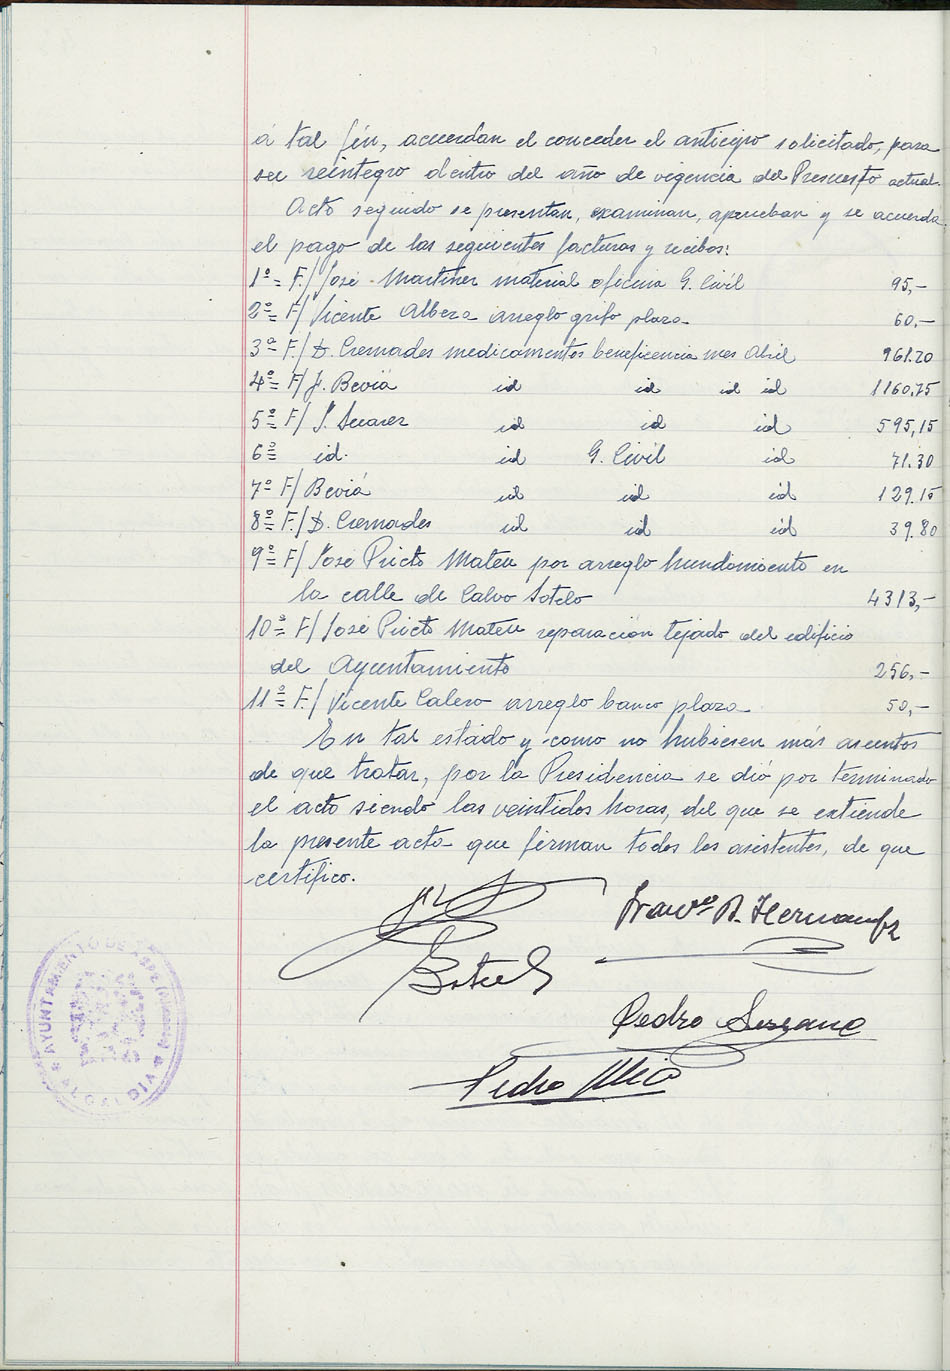 á tal fín, acuerdan el conceder el anticipo solicitado, para
su reintegro dentro del año de vigencia del Presupto actual.
Acto seguido se presentan, examinan, aprueban y se acuerda
el pago de las seguientes facturas y recibos:
1º = F./ José Martinez material oficina G. Civíl 95,-
2º = F/ Vicente Albera arreglo grifo plaza 60,-
3º = F./ D. Cremades medicamentos beneficencia mes Abril 961.20
4º = F/ J. Beviá id id id id 1160,75
5º = F/ J. Suarez id id id 595,15
6º = id. id G. Civíl id 71.30
7º = F/ Beviá id id id 129.15
8º = F./ D. Cremades id id id 39.80
9º = F/ José Prieto Mateu por arreglo hundimiento en
la calle de Calvo Sotelo 4313,-
10º = F/ José Prieto Mateu reparación tejado del edificio
del Ayuntamiento 256,-
11º = F./ Vicente Calero arreglo banco plaza 50,-
En tal estado y como no hubiesen más asuntos
de que tratar, por la Presidencia se dió por terminado
el acto siendo las veintidos horas, del que se extiende
la presente acta que firman todos los asistentes, de que
certifico.
Franco A. Hernandez
Pedro Lozano
Pedro Micó
AYUNTAMIENTO DE
ALCALDIA